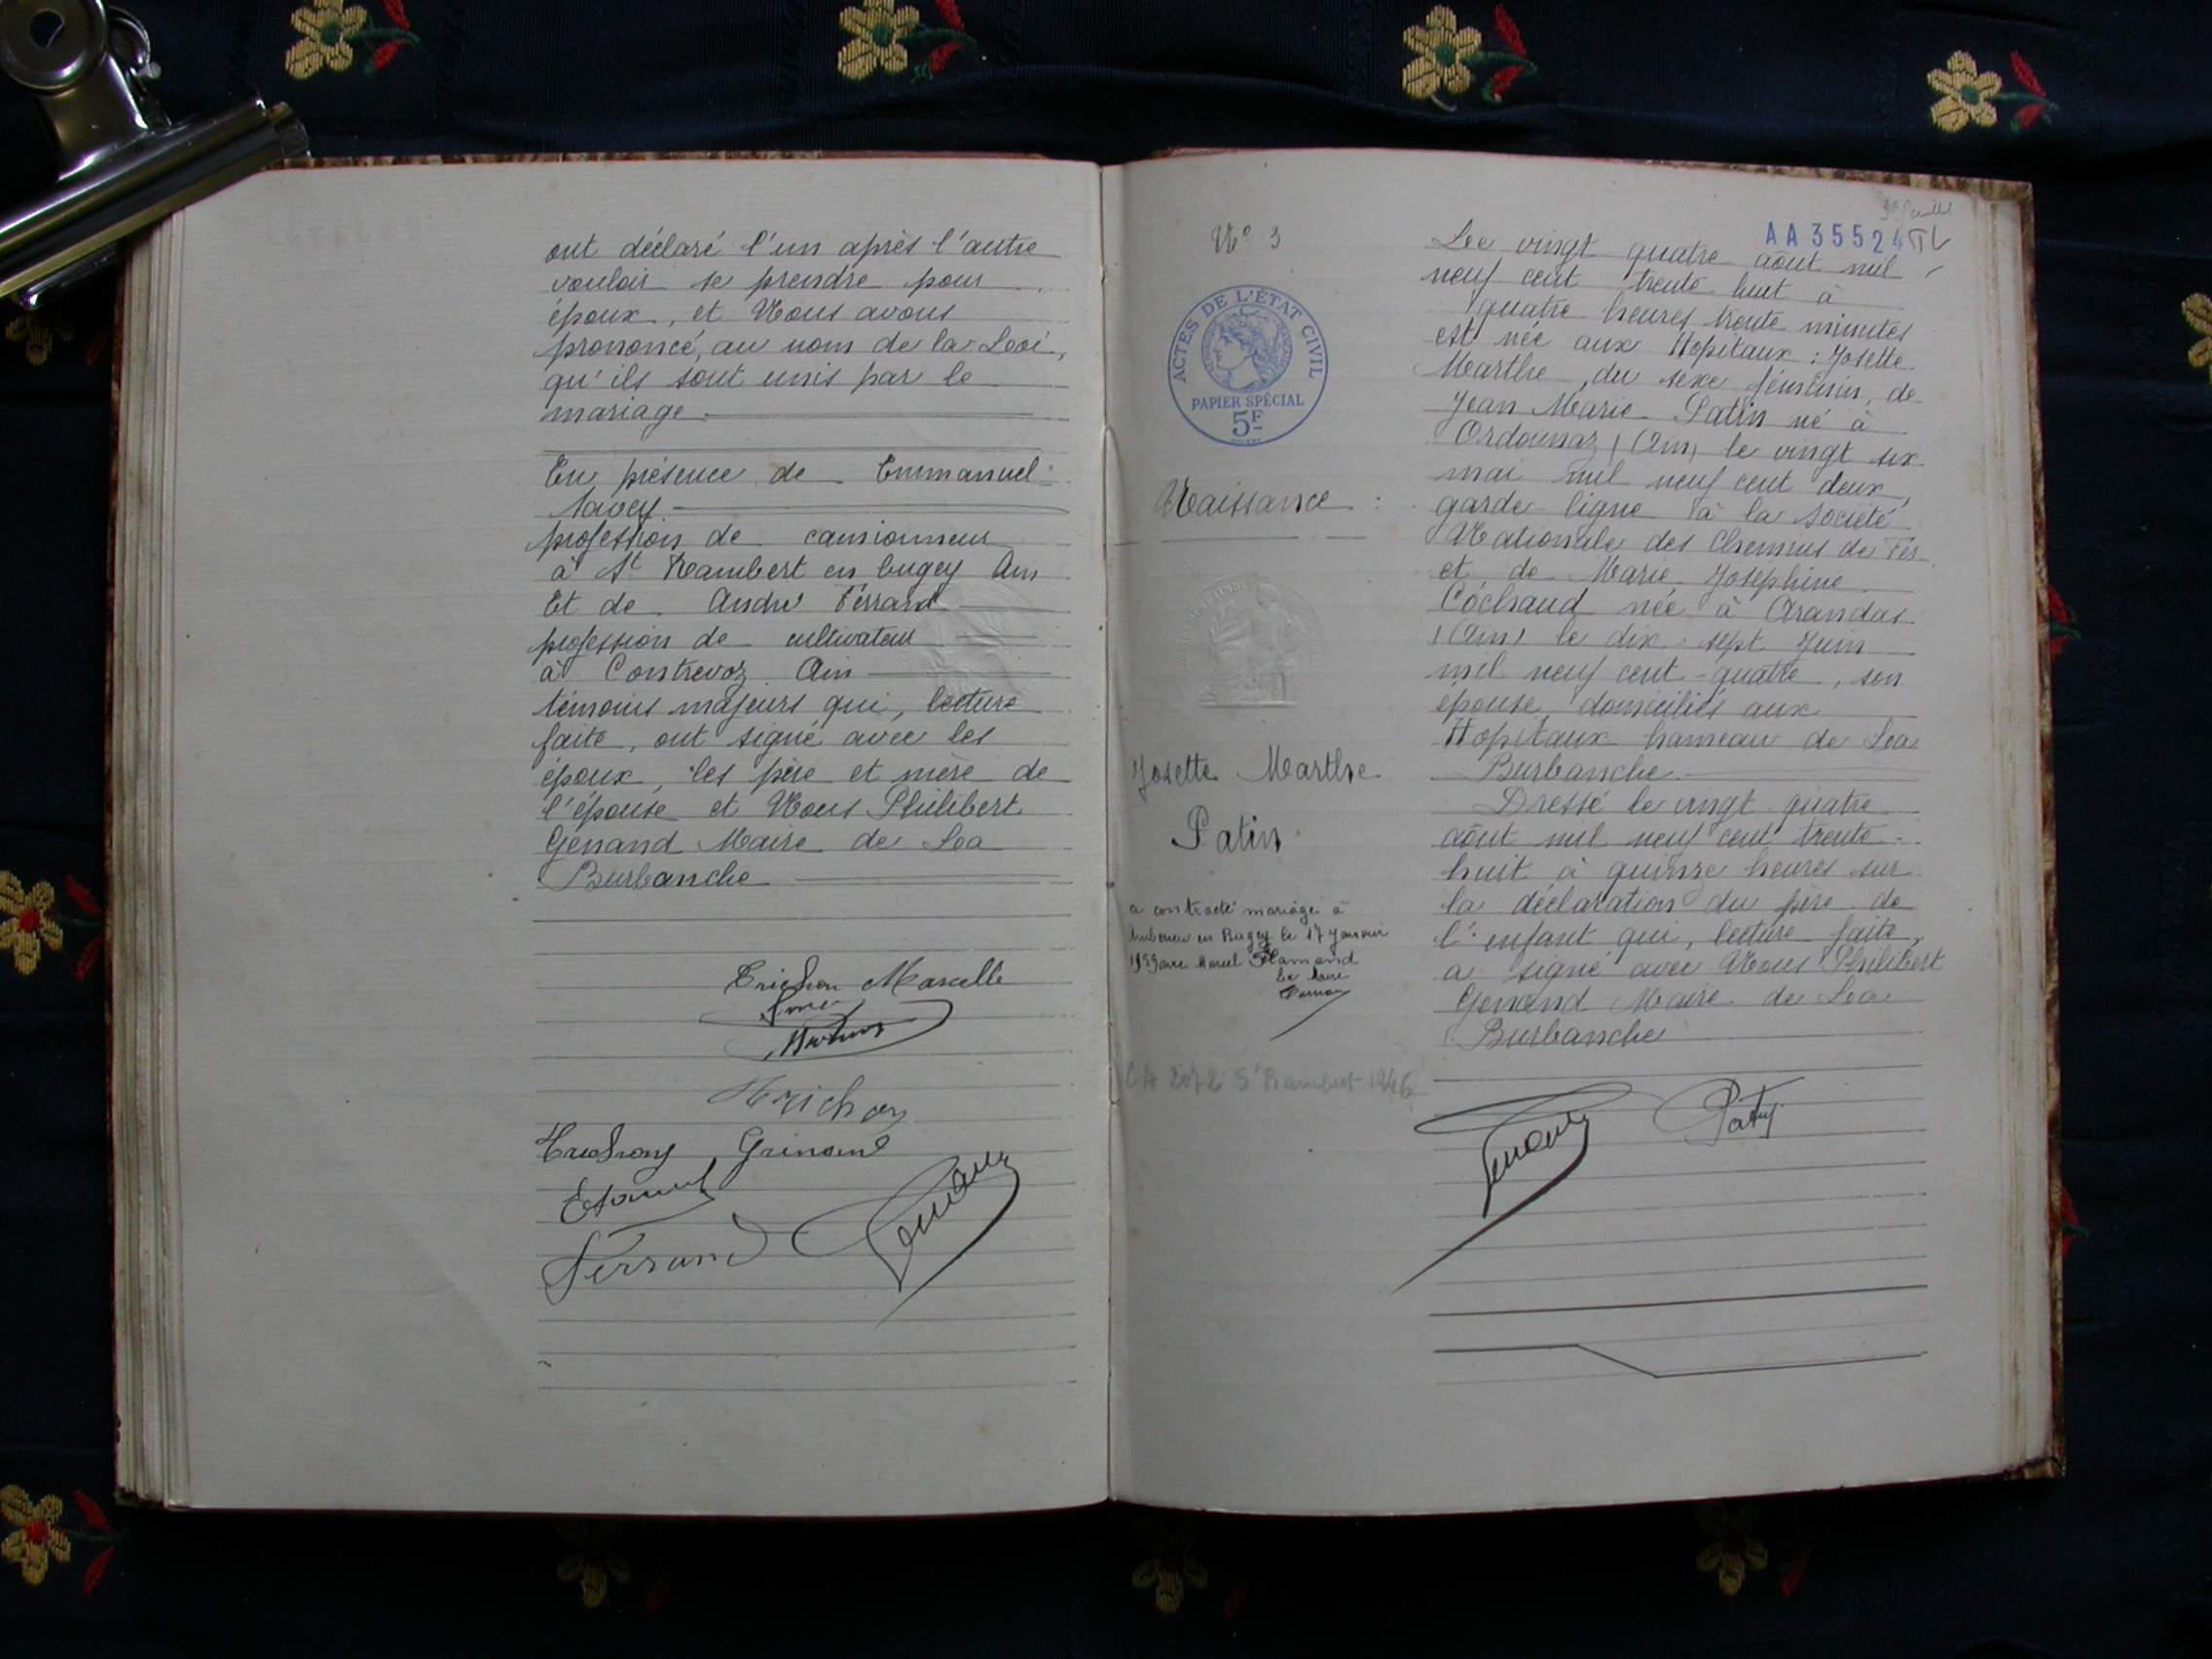 ont déclaré l'un après l'autre
vouloir se prendre pour
époux, et Nous avons
prononcé, au nom de la Loi,
qu'ils sont unis par le
mariage
En présence de Emmanuel
Savey
profession de camionneur
à St Rambert en bugey Ain
Et de André Ferrand
profession de cultivateur
à Contrevoz Ain
témoins majeurs qui, lecture
faite, ont signé avec les
époux, les père et mère de
l'épouse et Nous Philibert
Genand Maire de La
Burbanche
Marcelle
Ferrand
N° 3
ACTES DE L'ÉTAT CIVIL
PAPIER SPÉCIAL
5F
Naissance :
Josette Marthe
Patin
a contracté mariage à
en Bugey le 17 Janvier
avec Marcel Flamand
Le Maire
St Rambert 1946
AA35524
Le vingt quatre août mil
neuf cent trente huit à
quatre heures trente minutes
est née aux Hopitaux : Josette
Marthe, du sexe féminin, de
Jean Marie Patin né à
Ordonnaz (Ain) le vingt six
mai mil neuf cent deux,
garde ligne à la Société
Nationale des Chemins de Fer
et de Marie Joséphine
Cochaud née à Arandas
(Ain) le dix-sept Juin
mil neuf cent quatre, son
épouse, domiciliés aux
Hopitaux hameau de La
Burbanche.
Dressé le vingt quatre
août mil neuf cent trente-
huit à quinze heures sur
la déclaration du père de
l'enfant qui, lecture faite,
a signé avec Nous Philibert
Genand Maire de La
Burbanche
Patin